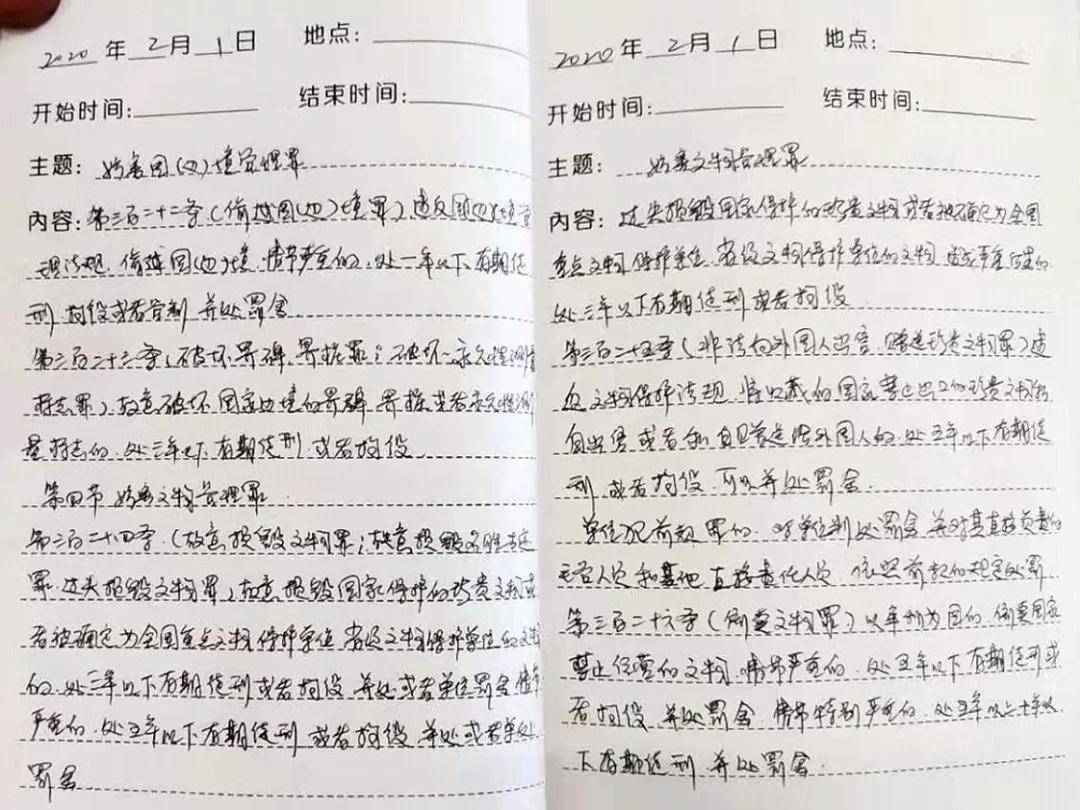 2020 年 2 月 1 日 地点：
开始时间： 结束时间：
主题： 妨害国(边)境管理罪
内容： 第三百二十二条(偷越国(边)境罪)违反国(边)境管
理法规，偷越国(边)境，情节严重的，处一年以下有期徒
刑，拘役或者管制，并处罚金
第三百二十三条(破坏界碑、界桩罪；破坏永久性测量
标志罪)故意破坏国家边境的界碑、界桩或者永久性测
量标志的，处三年以下有期徒刑或者拘役
第四节 妨害文物管理罪
第三百二十四条(故意损毁文物罪；故意损毁名胜古迹
罪，过失损毁文物罪)故意损毁国家保护的珍贵文物或
者被确定为全国重点文物保护单位，省级文物保护单位的文物
的，处三年以下有期徒刑或者拘役，并处或者单位罚金，情节
严重的，处五年以下有期徒刑或者拘役，并处或者单处
罚金
2020 年 2 月 1 日 地点：
开始时间： 结束时间：
主题： 妨害文物管理罪
内容： 过失损毁国家保护的珍贵文物或者被确定为全国
重点文物保护单位，省级文物保护单位的文物，造成严重后果的
处三年以下有期徒刑或者拘役
第三百二十五条(非法向外国人出售、赠送珍贵文物罪)违
反文物保护法规，将收藏的国家禁止出口的珍贵文物私
自出售或者私自赠送给外国人的，处五年以下有期徒
刑或者拘役，可以并处罚金
单位犯前款罪的，对单位判处罚金，并对其直接负责的
主管人员和其他直接责任人员，依照前款的规定处罚
第三百二十六条(倒卖文物罪)以牟利为目的，倒卖国家
禁止经营的文物，情节严重的，处五年以下有期徒刑或
者拘役，并处罚金，情节特别严重的，处五年以上十年以
下有期徒刑，并处罚金.